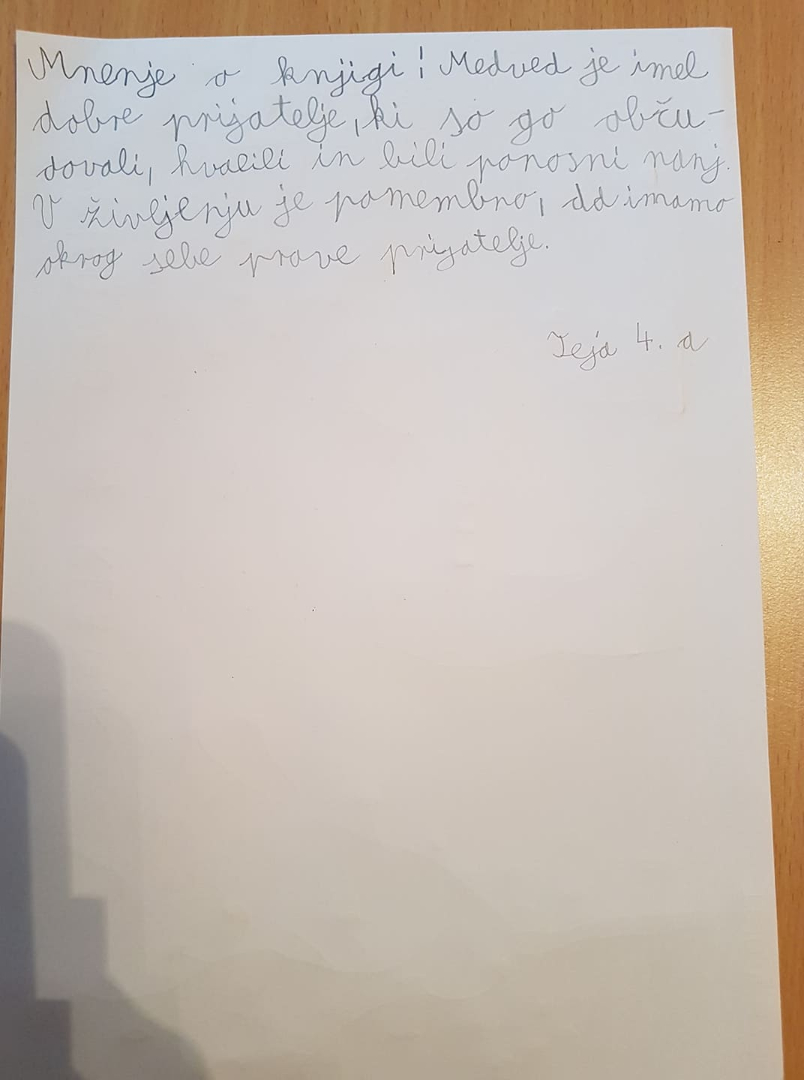 Mnenje o knjigi: Medved je imel
dobre prijatelje, ki so go obču-
dovali, hvalili in bili ponosni nanj.
V življenju je pomembno, da imamo
okrog sebe prave prijatelje.
Teja 4. a